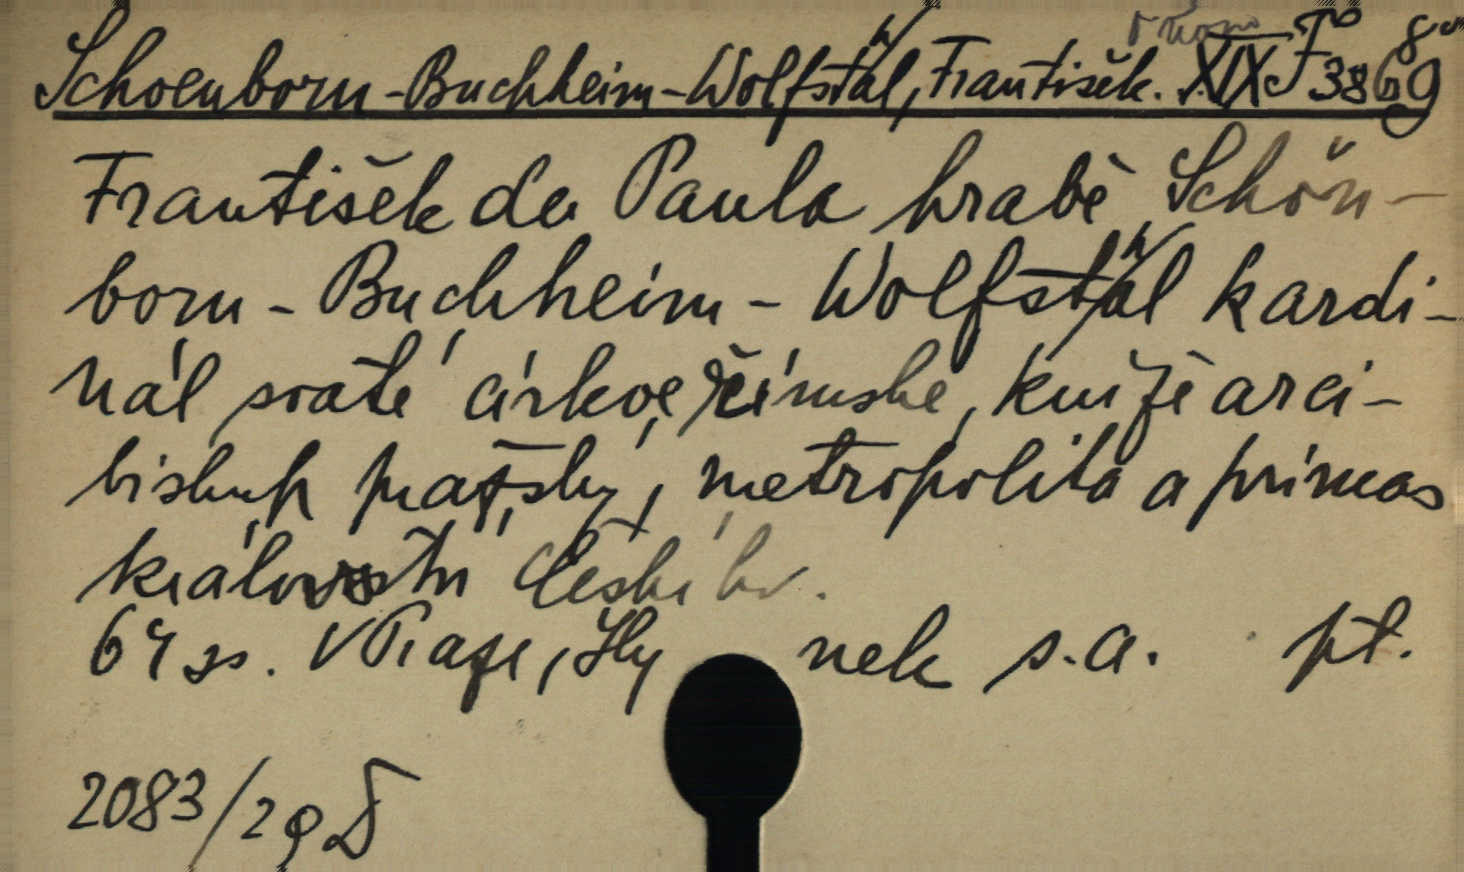 Schoenborn-Buchheim-Wolfsthal, František. XIX F 3869
František de Paula hrabě Schön-
born - Buchheim - Wolfsthal kardi-
nál svaté církve římské, kníže arci-
biskup pražský, metropolita a primas
království Českého.
64 ss. V Praze, Hy nek s.a. pt.
2083/29 D